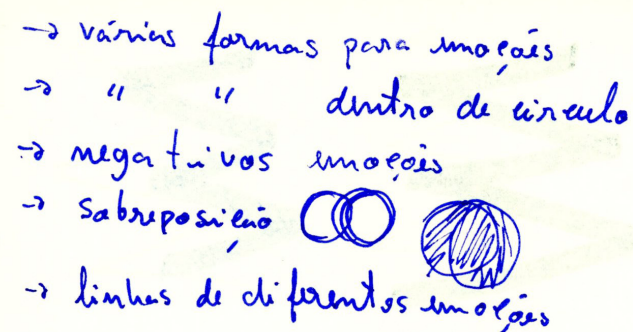 → várias formas para emoções
→ " " dentro de circulo
→ negativos emoções
→ sobreposição
→ linhas de diferentes emoções